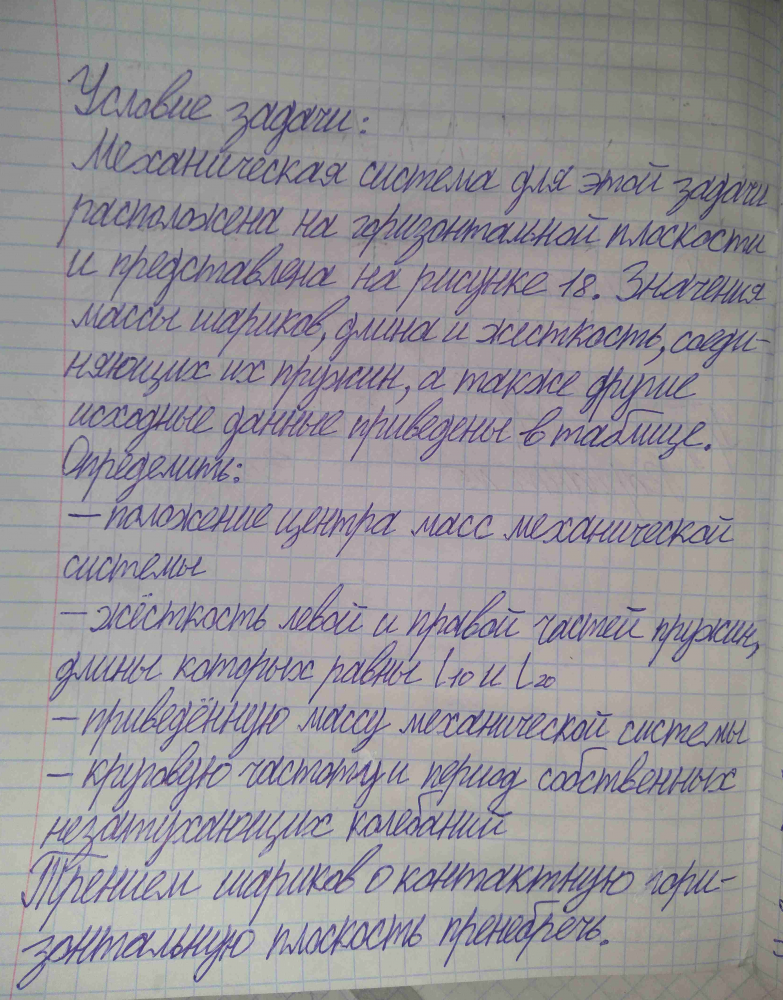 Условие задачи:
Механическая система для этой задачи
расположена на горизонтальной плоскости
и представлена на рисунке 18. Значения
массы шариков, длина и жесткость, соеди-
няющих их пружин, а также другие
исходные данные приведены в таблице.
Определить:
– положение центра масс механической
системы
– жёсткость левой и правой частей пружин,
длины которых равны l₁₀ и l₂₀
– приведённую массу механической системы
– круговую частоту и период собственных
незатухающих колебаний
Трением шариков о контактную гори-
зонтальную плоскость пренебречь.